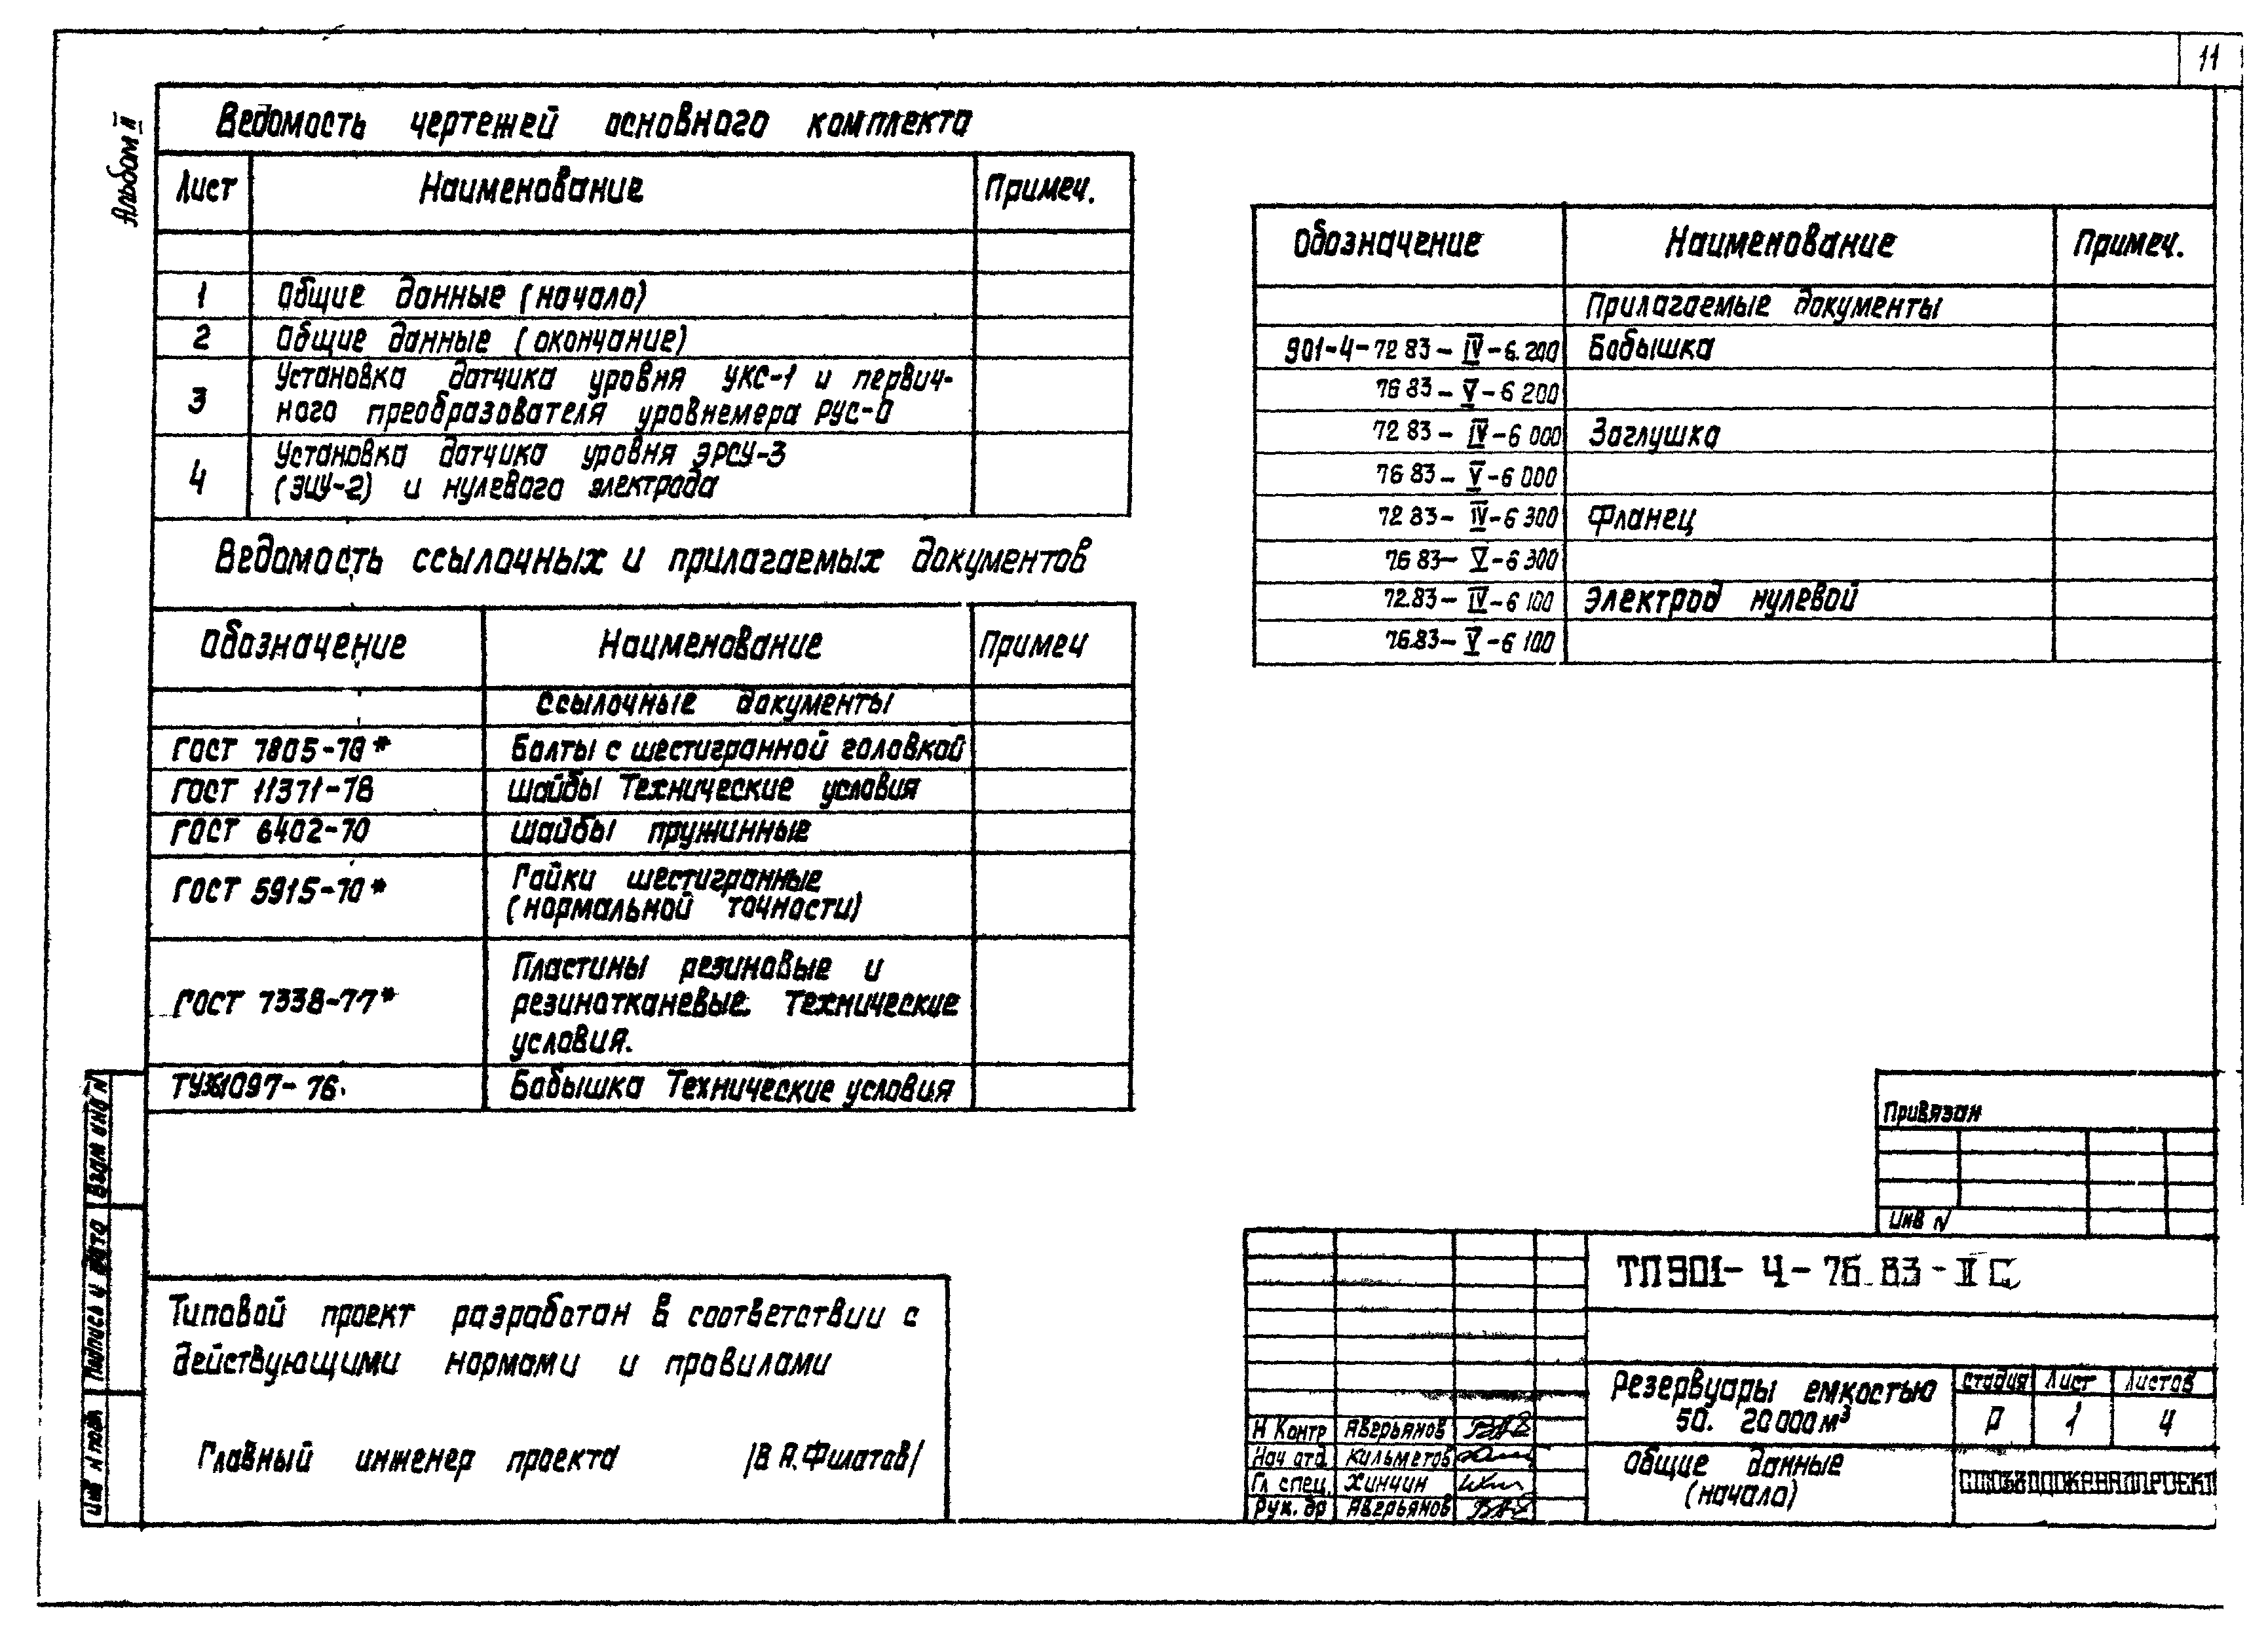 11
Альбом II
Ведомость чертежей основного комплекта
Лист Наименование Примеч.
1 Общие данные (начало)
2 Общие данные (окончание)
3 Установка датчика уровня УКС-1 и первич-
ного преобразователя уровнемера РУС-0
4 Установка датчика уровня ЭРСУ-3
(ЭИУ-2) и нулевого электрода
Ведомость ссылочных и прилагаемых документов
Обозначение Наименование Примеч
Ссылочные документы
ГОСТ 7805-70* Болты с шестигранной головкой
ГОСТ 11371-78 Шайбы Технические условия
ГОСТ 6402-70 Шайбы пружинные
ГОСТ 5915-70* Гайки шестигранные
(нормальной точности)
ГОСТ 7338-77* Пластины резиновые и
резинотканевые. Технические
условия.
1097-76. Бобышка Технические условия
Обозначение Наименование Примеч.
Прилагаемые документы
901-4-72 83-IV-6.200 Бобышка
76 83-V-6 200
72 83-IV-6 000 Заглушка
76 83-V-6 000
72 83-IV-6 300 Фланец
76 83-V-6 300
72.83-IV-6 100 Электрод нулевой
76.83-V-6 100
Типовой проект разработан в соответствии с
действующими нормами и правилами
Главный инженер проекта /В А.Филатов/
Взам инв N
Подпись и дата
Инв N подл
Привязан
Инв N
ТП 901-4-76.83-II С
Резервуары емкостью
50. 20 000 м³
Стадия Лист Листов
Р 1 4
Общие данные
(начало)
СОЮЗВОДОКАНАЛПРОЕКТ
Н Контр Аверьянов
Нач отд. Кильметов
Гл спец. Хинчин
Рук. бр Аверьянов